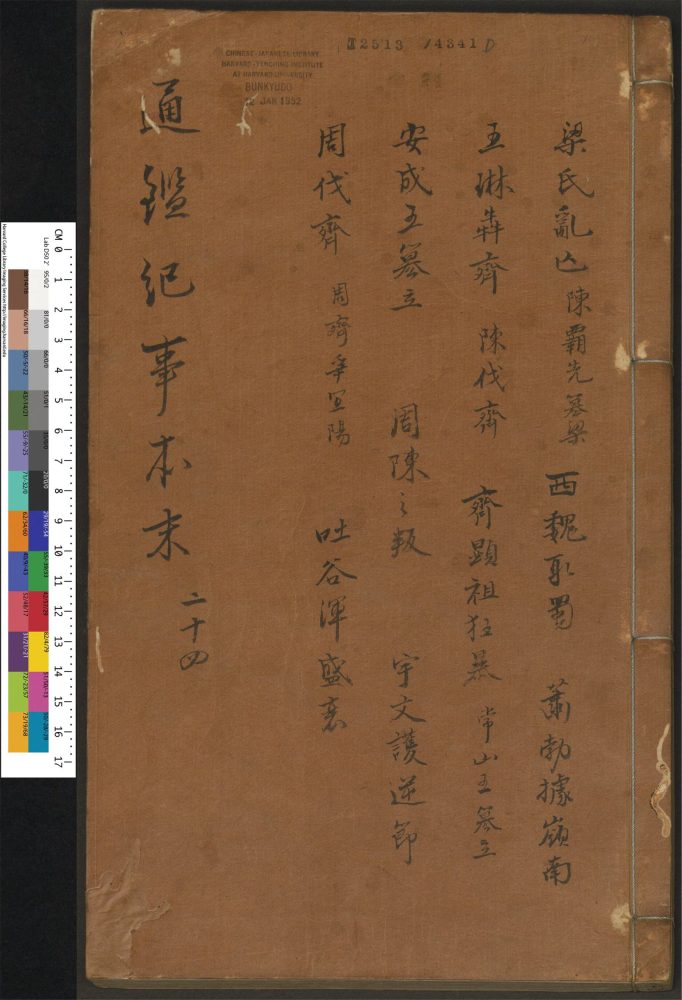 梁氏亂亡 陳霸先篡梁 西魏取蜀 蕭勃據嶺南
王琳奔齊 陳伐齊 齊顯祖狂暴 常山王篡立
安成王篡立 周陳之叛 宇文護逆節
周伐齊 周齊爭宜陽 吐谷渾盛衰
通鑑紀事本末 二十四
T2513 /4341D
CHINESE-JAPANESE LIBRARY
HARVARD-YENCHING INSTITUTE
AT HARVARD UNIVERSITY
BUNKYUDO
JAN 1952
CM 0 1 2 3 4 5 6 7 8 9 10 11 12 13 14 15 16 17